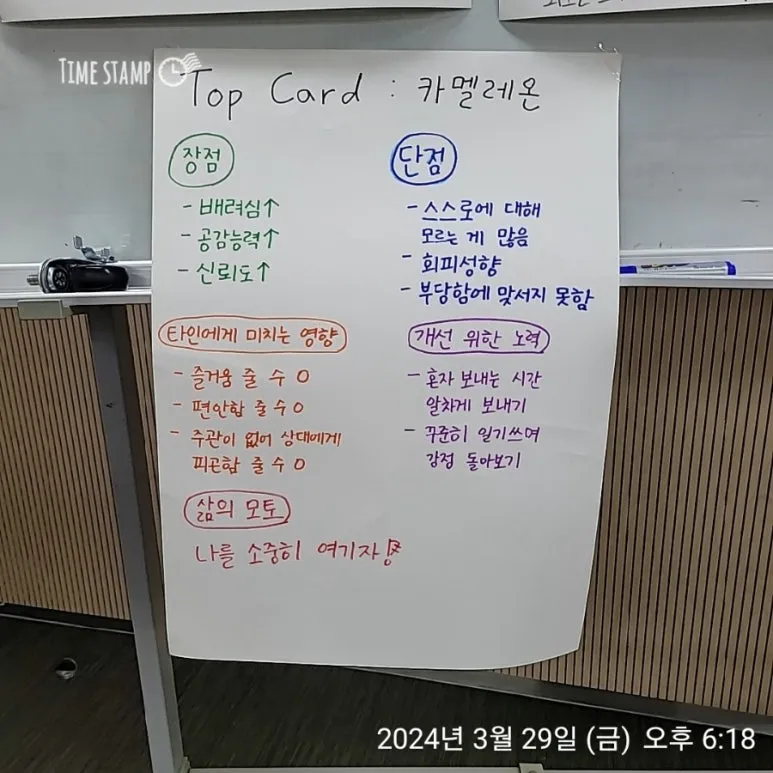 TIME STAMP
Top Card : 카멜레온
장점
- 배려심↑
- 공감능력↑
- 신뢰도↑
단점
- 스스로에 대해
모르는 게 많음
- 회피성향
- 부당함에 맞서지 못함
타인에게 미치는 영향
- 즐거움 줄 수 O
- 편안함 줄 수 O
- 주관이 없어 상대에게
피곤함 줄 수 O
개선 위한 노력
- 혼자 보내는 시간
알차게 보내기
- 꾸준히 일기쓰며
강점 돌아보기
삶의 모토
나를 소중히 여기자!
2024년 3월 29일 (금) 오후 6:18